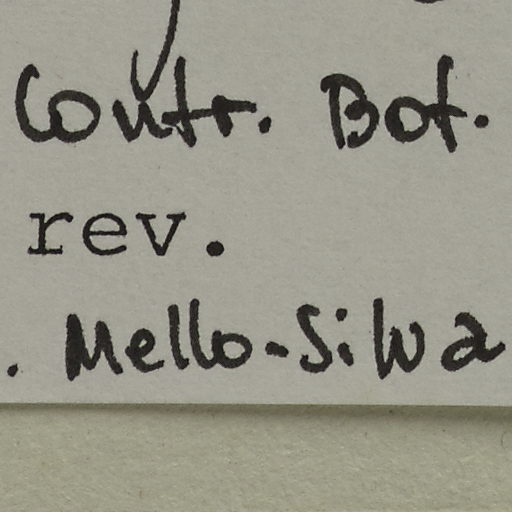 Contr. Bot.
rev.
. Mello-Silva